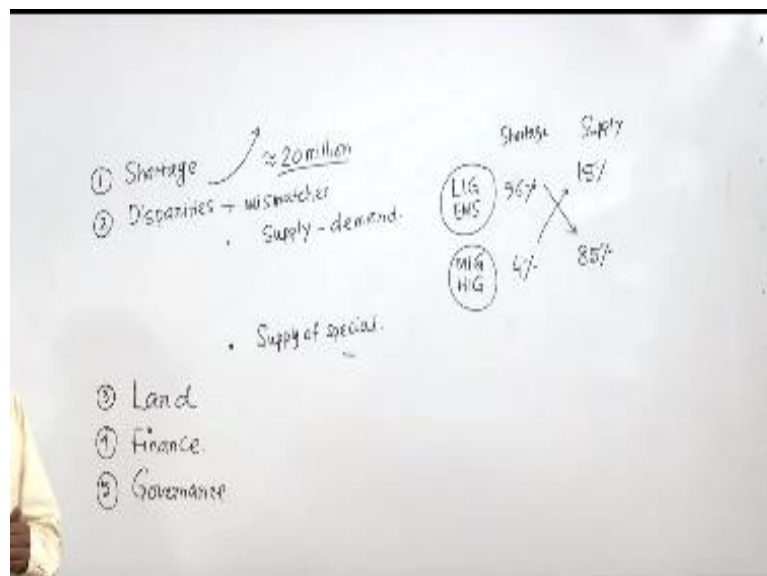 ① Shortage ≈ 20 million
② Disparities → mismatches
• Supply - demand.
• Supply of special.
③ Land
④ Finance.
⑤ Governance
Shortage Supply
LIG EWS 96% 15%
MIG HIG 4% 85%